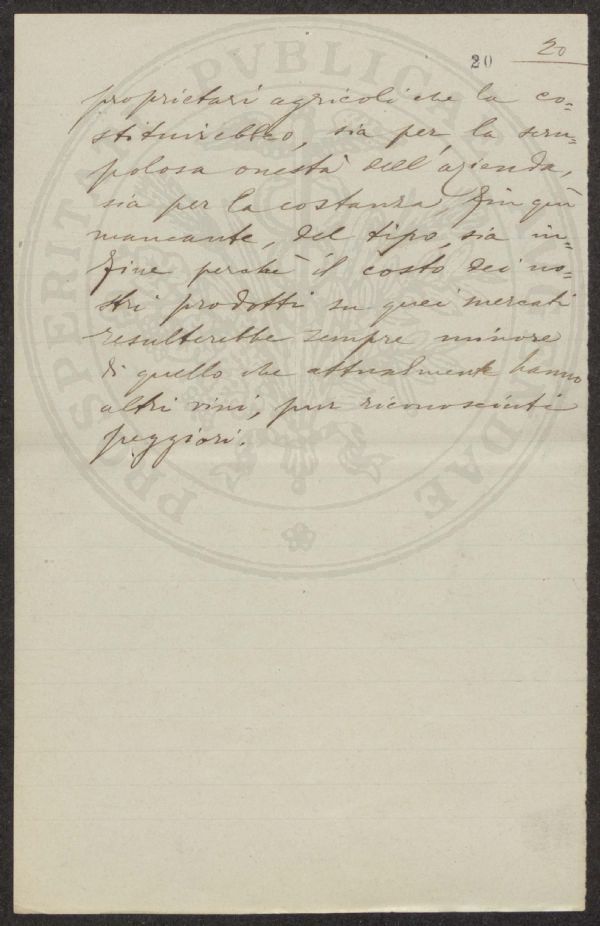 20
20
proprietari agricoli che la co=
stituirebbero, sia per la scru=
polosa onestà dell'azienda,
sia per la costanza, fin qui
mancante, del tipo, sia in=
fine perchè il costo dei no=
stri prodotti su quei mercati
resulterebbe sempre minore
di quello che attualmente hanno
altri vini, pur riconosciuti
peggiori.
PROSPERITATI PVBLICAE AVGENDAE